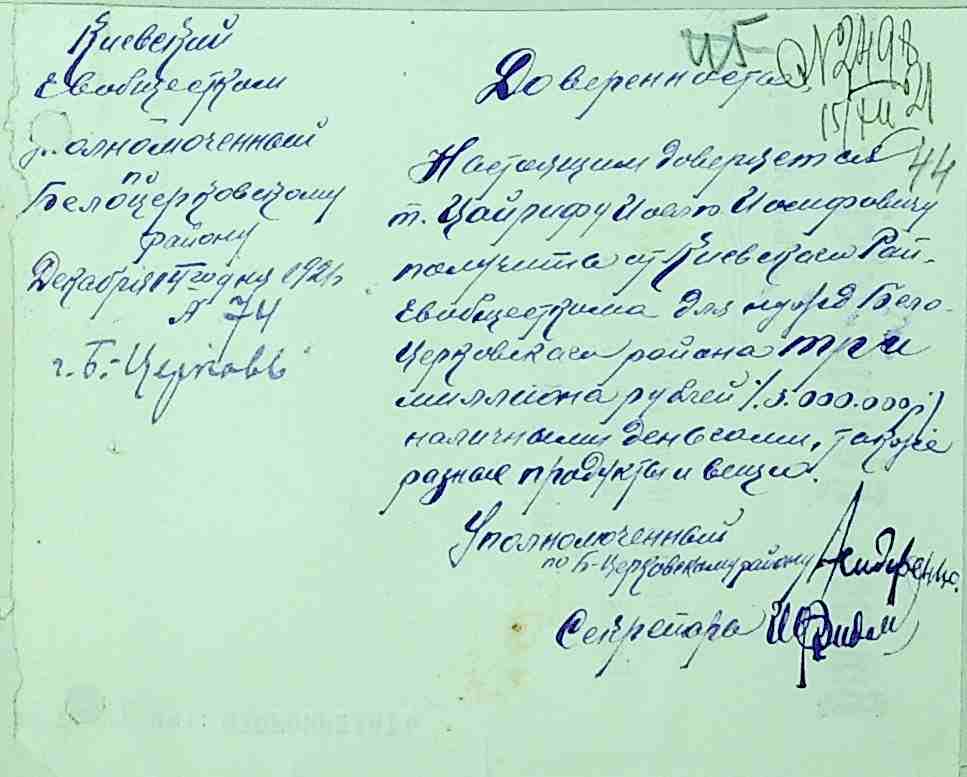 Киевский
Евобщестком
Уполномоченный
по
Белоцерковскому
району
Декабря 14го дня 1921
№ 74
г. Б.-Церковь
45
№ 2498
15/XII 21
44
Доверенность
Настоящим доверяется
т. Цайрифу Иосифовичу
получить от Киевского Рай-
Евобщесткома для нужд Бело-
Церковского района три
миллиона рублей /3.000.000р/
наличными деньгами, также
разные продукты и вещи.
Уполномоченный
по Б-Церковскому району
Секретарь